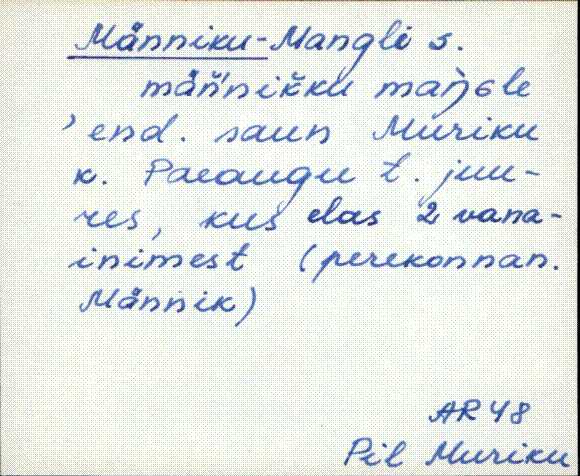 Männiku-Mangli s.
mäǹnikku maŋ̀gle
’end. saun Muriku
k. Paeaugu t. juu-
res, kus elas 2 vana-
inimest (perekonnan.
Männik)
AR 48
Pil Muriku